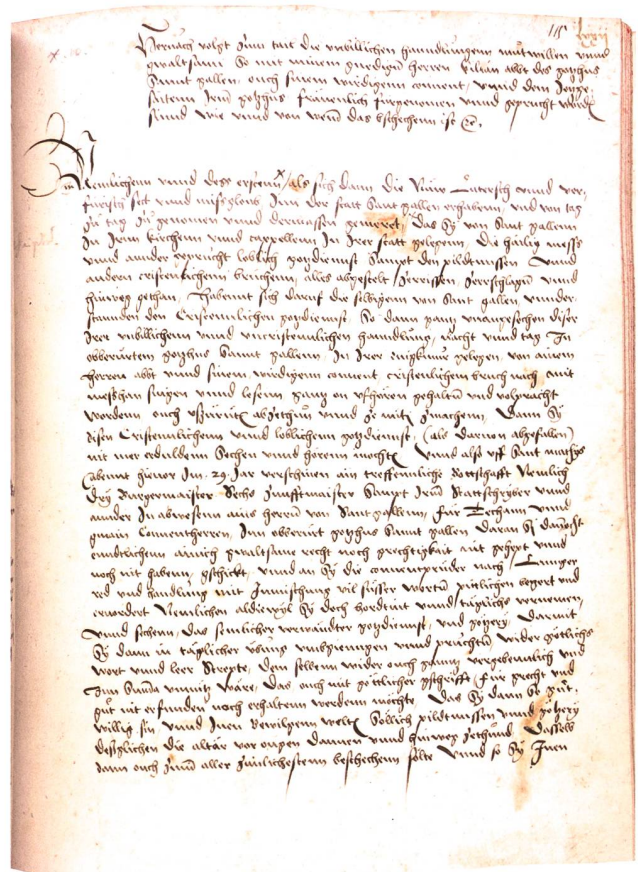 Hernach volgt zum tail die unbillichen hanndlungenn mutwillen unnd
gwaltsami So mit minem gnedigen herren Kilian abbt des gotzhus
Sannt gallen, ouch sinem wirdigenn convent, unnd dem
irem gotzhus fräuenlich fürgenomen unnd gepracht
Sinnd wie unnd von wem das bschechenn ist
Nemlichenn unnd des ersten als sich dann die Nüw Lutersch unnd ver-
fürisch sect und missgloub Inn der statt Sannt gallen erhabenn, und von tag
zu tag zugenomen unnd dermassen gemeret, das Sy von Sant gallenn
In Irenn kirchenn unnd cappellenn In Irer statt gelegenn, die hailig mess
unnd annder gepracht loblich gotzdiennst Sampt den pildtnussen unnd
andern cristenlichenn brüchenn, alles abgestelt zerrissen, zerschlagen unnd
hinweg gethan, Habennt sich daruf die selbigenn von Sant gallen unnder-
stannden den Cristennlichenn gotzdiennst So dann gantz unangesechen diser
Irer unbillichenn unnd uncristennlichenn hanndlung, nacht unnd tag In
obberürtem gotzhus Sannt gallenn, In Irer ringkmur gelegen, von ainem
herren abbt unnd sinem wirdigenn convent cristenlichem bruch nach mit
messhan singen unnd lesenn gantz on ufhören gehalten und volpracht
wordenn ouch abzethun unnd ze nüti zmachenn, Dann Sy
disen Cristennlichenn unnd loblichenn gotzdiennst, (als darvon abgefallen)
nit mer erduldenn Sechen unnd hörenn mochten unnd also uff Sant mathis
abennt hievor Im 29 Jar verschinen ain treffennliche Bottschafft Nemlich
dry Burgermaister Sechs Zunfftmaister Sampt Irem Stattschryber unnd
annder In abwesenn ains herrn von Sant gallenn, für Techann unnd
gmain Conventherren, Inn obberürt gotzhus Sannt gallen Daran Sy dannocht
ainich gwaltsame recht noch grechtigkait nit gehept unnd
noch nit habenn, gschickt, unnd an Sy die conventprüder nach Lannger
red und hanndlung mit Inmischung vil süsser worten früntlichen begert und
ervordert Nemlichen aldiewyl Sy doch und täglichs vernemen,
unnd sechenn, das semlicher vermainter gotzdiennst, und götzery, Darmit
Sy dann in täglicher übung umbgienngen unnd wider götlichs
wort unnd leer Strepte, dem selbenn wider ouch ganntz vergebennlich und
Inn Summa unnütz wäre, Das ouch mit göttlicher gschrifft, für grecht und
gut nit erfunden noch erhaltenn werdenn möchte, das Sy dann So gut-
willig sin, unnd Inen bewilgenn welten Söllich pildtnussen unnd götzery
dessglichen die altär vor ougen dannen unnd hinweg zethund, Dasselb
dann ouch zum aller füglichostenn beschechenn sölte Unnd so Sy Inen